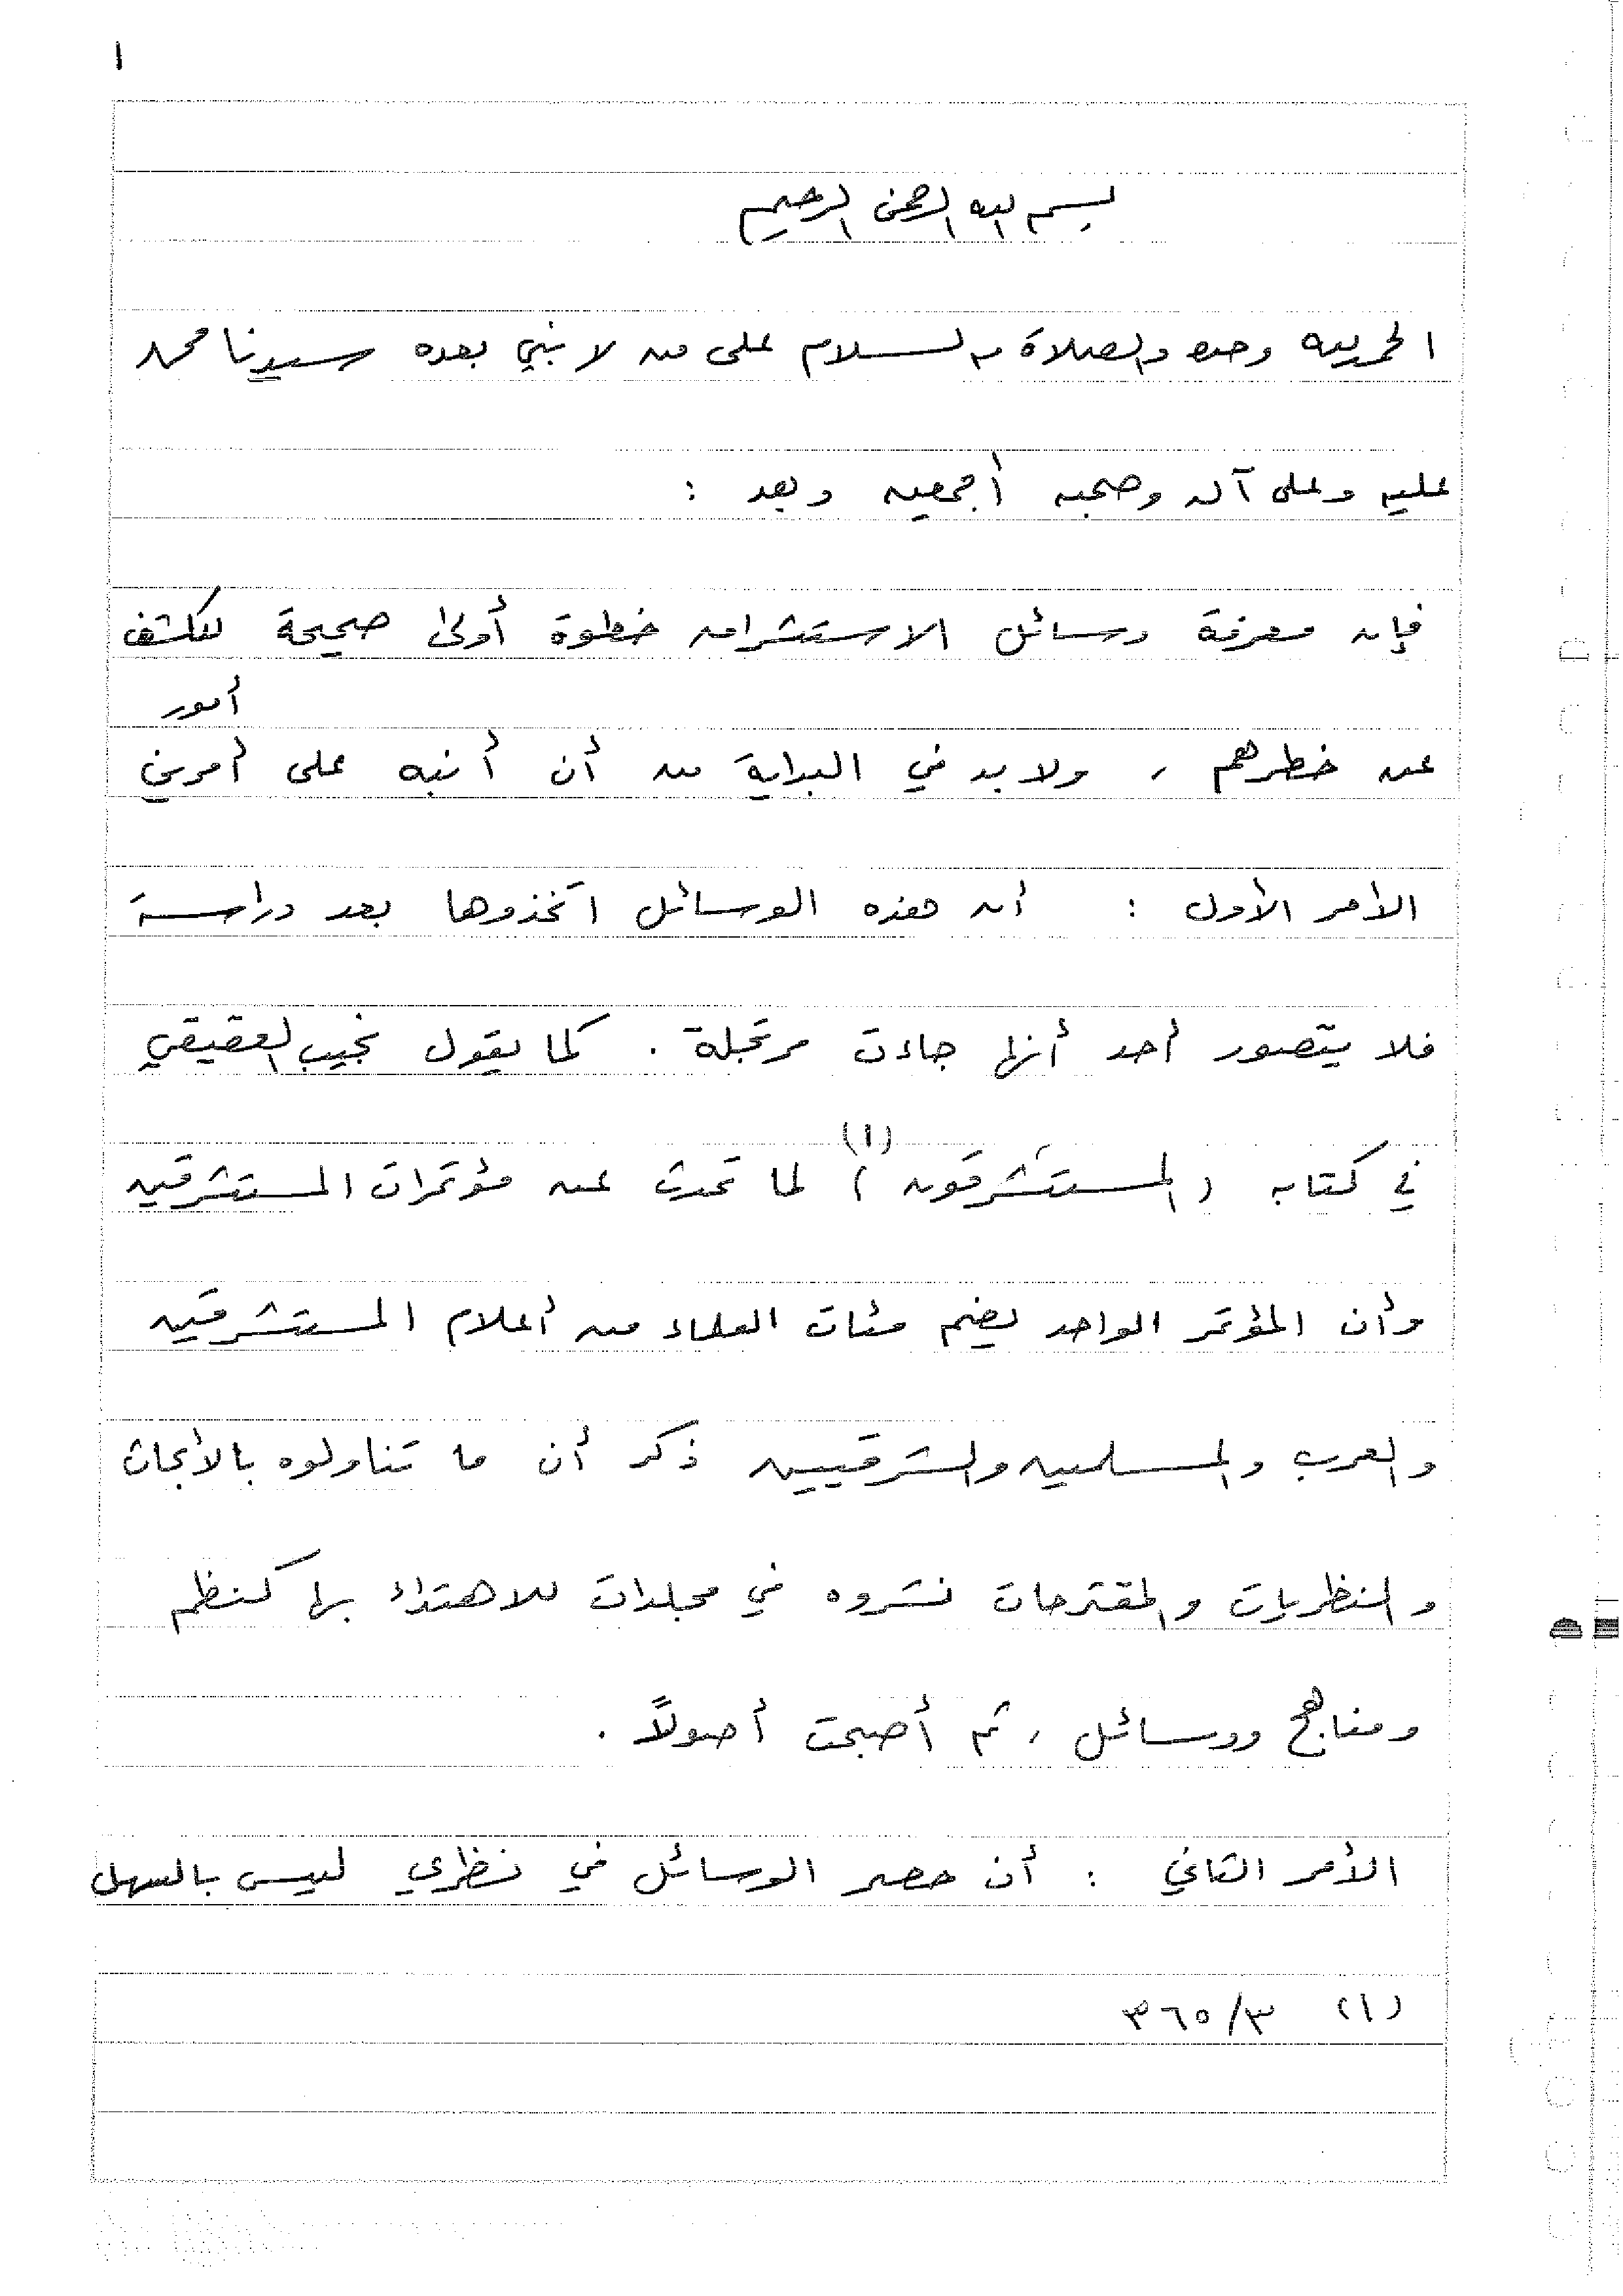 ١
بسم الله الرحمن الرحيم
الحمد لله وحده والصلاة والسلام على من لا نبي بعده سيدنا محمد
عليه وعلى آله وصحبه أجمعين وبعد :
فإن معرفة وسائل الاستشراق خطوة أولى صحيحة للكشف
أمور
عن خطرهم ، ولا بد في البداية من أن أنبه على أمرين
الأمر الأول : أن هذه الوسائل اتخذوها بعد دراسة
فلا يتصور أحد أنها جاءت مرتجلة . كما يقول نجيب العقيقي
في كتابه ( المستشرقون )(١) لما تحدث عن مؤتمرات المستشرقين
وأن المؤتمر الواحد يضم مئات العلماء من أعلام المستشرقين
والعرب والمسلمين والشرقيين ذكر أن ما تناولوه بالأبحاث
والنظريات والمقترحات نشروه في مجلدات للاهتداء بها كنظم
ومناهج ووسائل ، ثم أصبحت أصولاً .
الأمر الثاني : أن حصر الوسائل في نظري ليس بالسهل
(١) ٣/٣٦٥